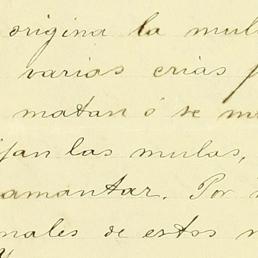 origina la mul
varias crias p
matan ó se m
jan las mulas,
amantar. Por
nales de estos m